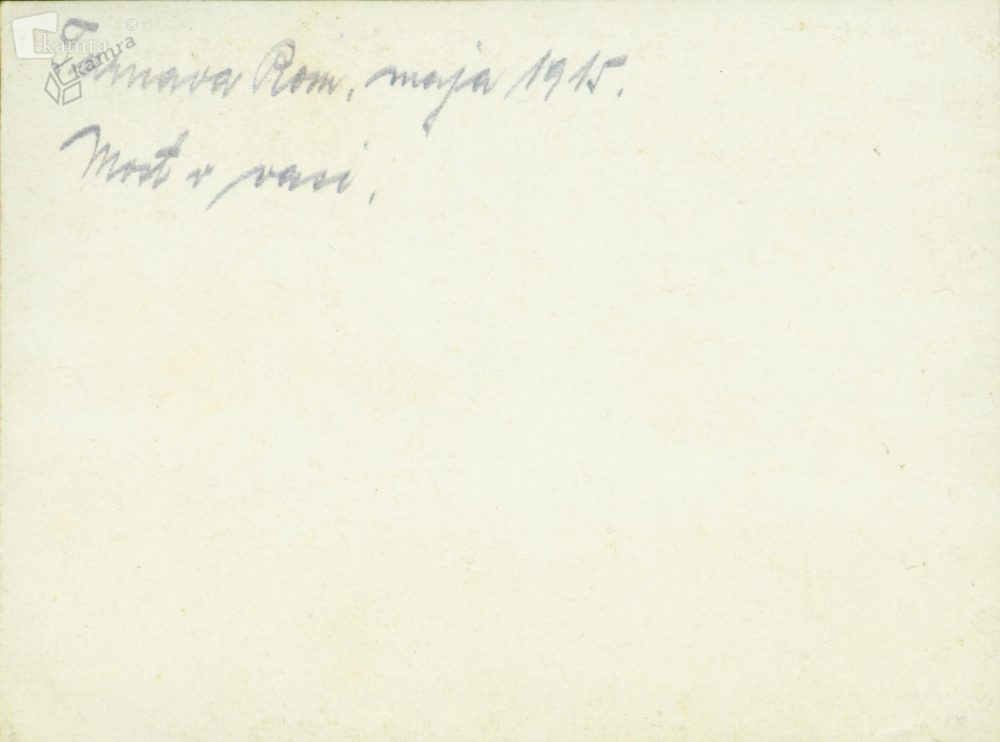 kamra ©
kamra
Rom, maja 1915.
Most v vasi,